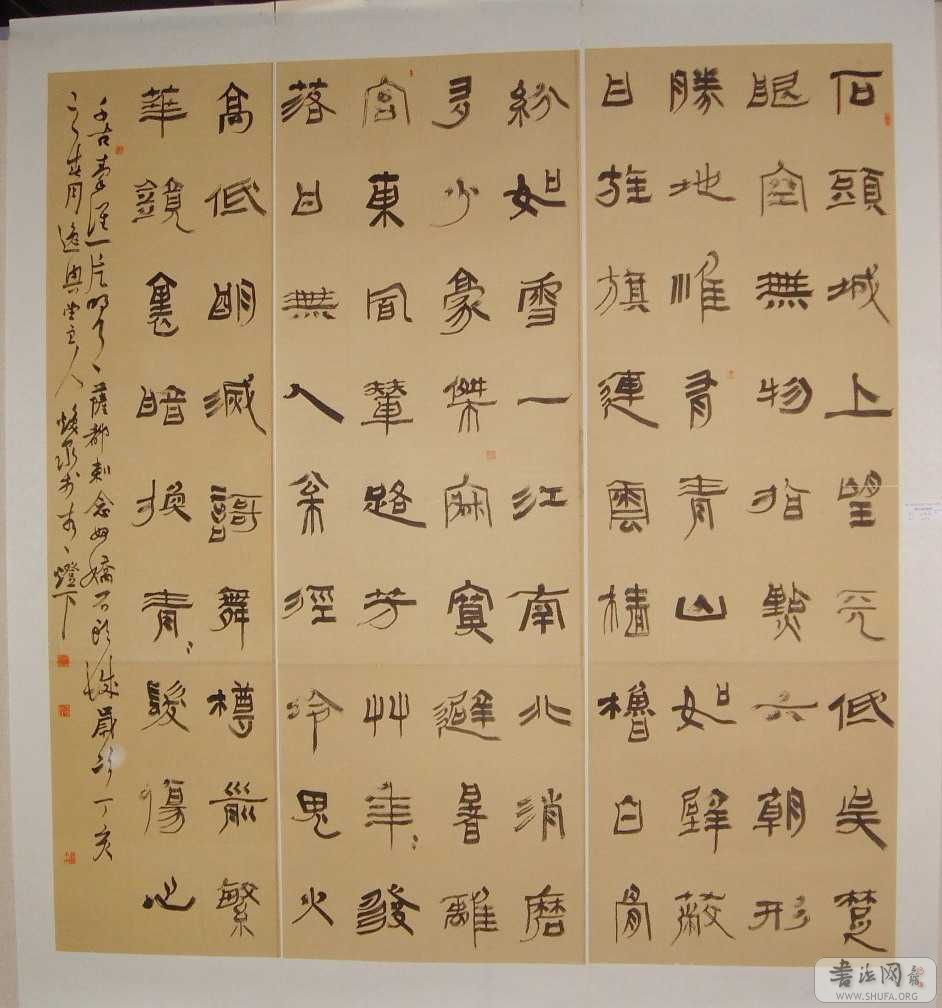 石頭城上望天低吳楚
眼空無物指點六朝形
勝地惟有青山如壁蔽
日旌旗連雲檣櫓白骨
紛如雪一江南北消磨
多少豪傑寂寞避暑離
宮東風輦路芳草年〻發
落日無人松徑冷鬼火
高低明滅歌舞樽前繁
華鏡裏暗換青〻髮傷心
千古秦淮一片明月、薩都剌念奴嬌石頭城歲次丁亥
之春月逸興堂主人燈下
书法网
WWW.SHUFA.ORG